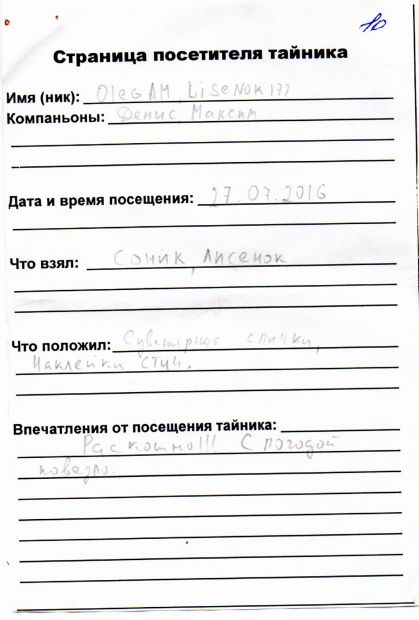 10
Страница посетителя тайника
Имя (ник): OlegAM, LiseNok177
Компаньоны: Денис, Максим
Дата и время посещения: 27.07.2016
Что взял: Соник, Лисенок
Что положил: Сувенирные спички,
Наклейки
Впечатления от посещения тайника:
Раскошно!!! С погодой
повезло.